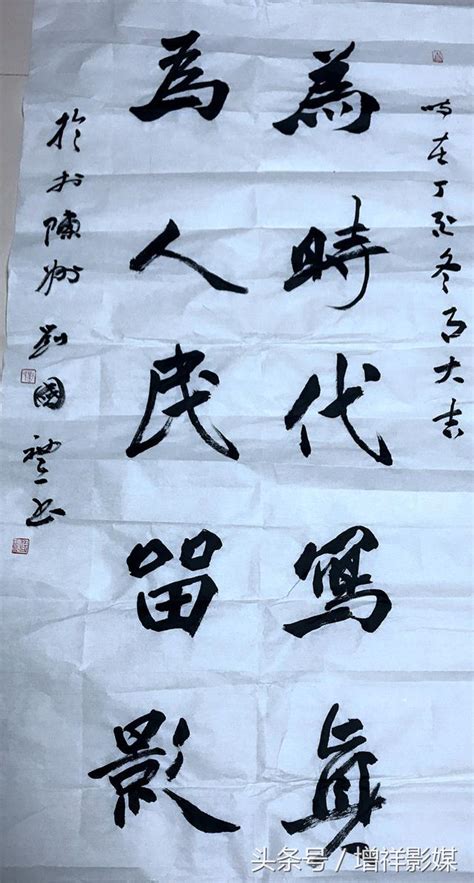 时在丁酉冬月大吉
為時代寫真
為人民留影
於陳州劉國禮书
头条号 / 增祥影媒